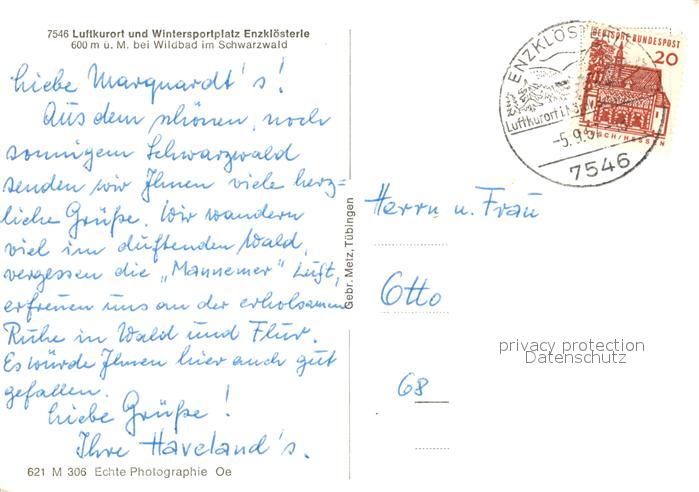 7546 Luftkurort und Wintersportplatz Enzklösterle
600 m ü. M. bei Wildbad im Schwarzwald
Liebe Marquardt's!
Aus dem schönen, noch
sonnigem Schwarzwald
senden wir Ihnen viele herz=
liche Grüße. Wir wandern
viel im duftenden Wald,
vergessen die „Mannemer" Luft,
erfreuen uns an der erholsamen
Ruhe in Wald und Flur.
Es würde Ihnen hier auch gut
gefallen.
Liebe Grüße!
Ihre Haveland's.
621 M 306 Echte Photographie Oe
Gebr. Metz, Tübingen
ENZKLÖS
Luftkurort i.
-5.9.6
7546
DEUTSCHE BUNDESPOST
20
SCH/HESSEN
Herrn u. Frau
Otto
68
privacy protection
Datenschutz